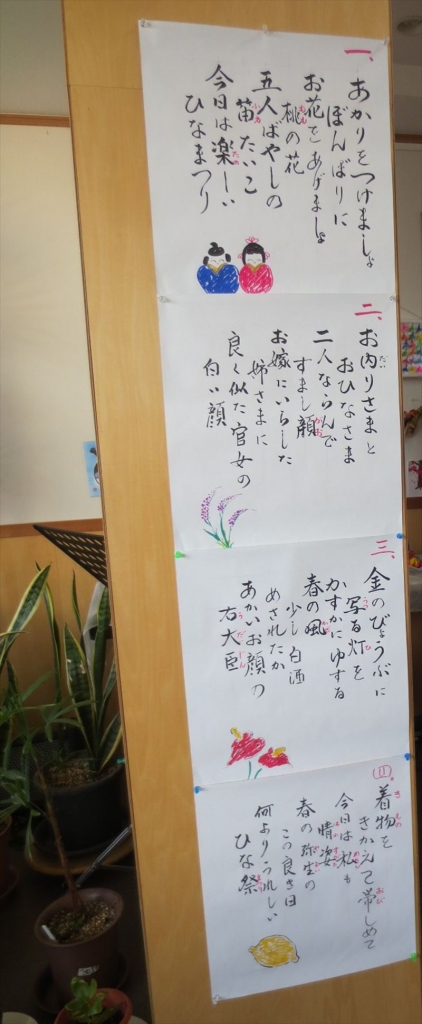 一、
あかりをつけましょ
ぼんぼりに
お花をあげましょ
桃の花
五人ばやしの
笛たいこ
今日は楽しい
ひなまつり
二、
お内りさまと
おひなさま
二人ならんで
すまし顔
お嫁にいらした
姉さまに
良く似た官女の
白い顔
三、
金のびょうぶに
写る灯を
かすかにゆする
春の風
少し白酒
めされたか
あかいお顔の
右大臣
四、
着物を
きかえて帯しめて
今日は私も
晴姿
春の弥生の
この良き日
何よりうれしい
ひな祭